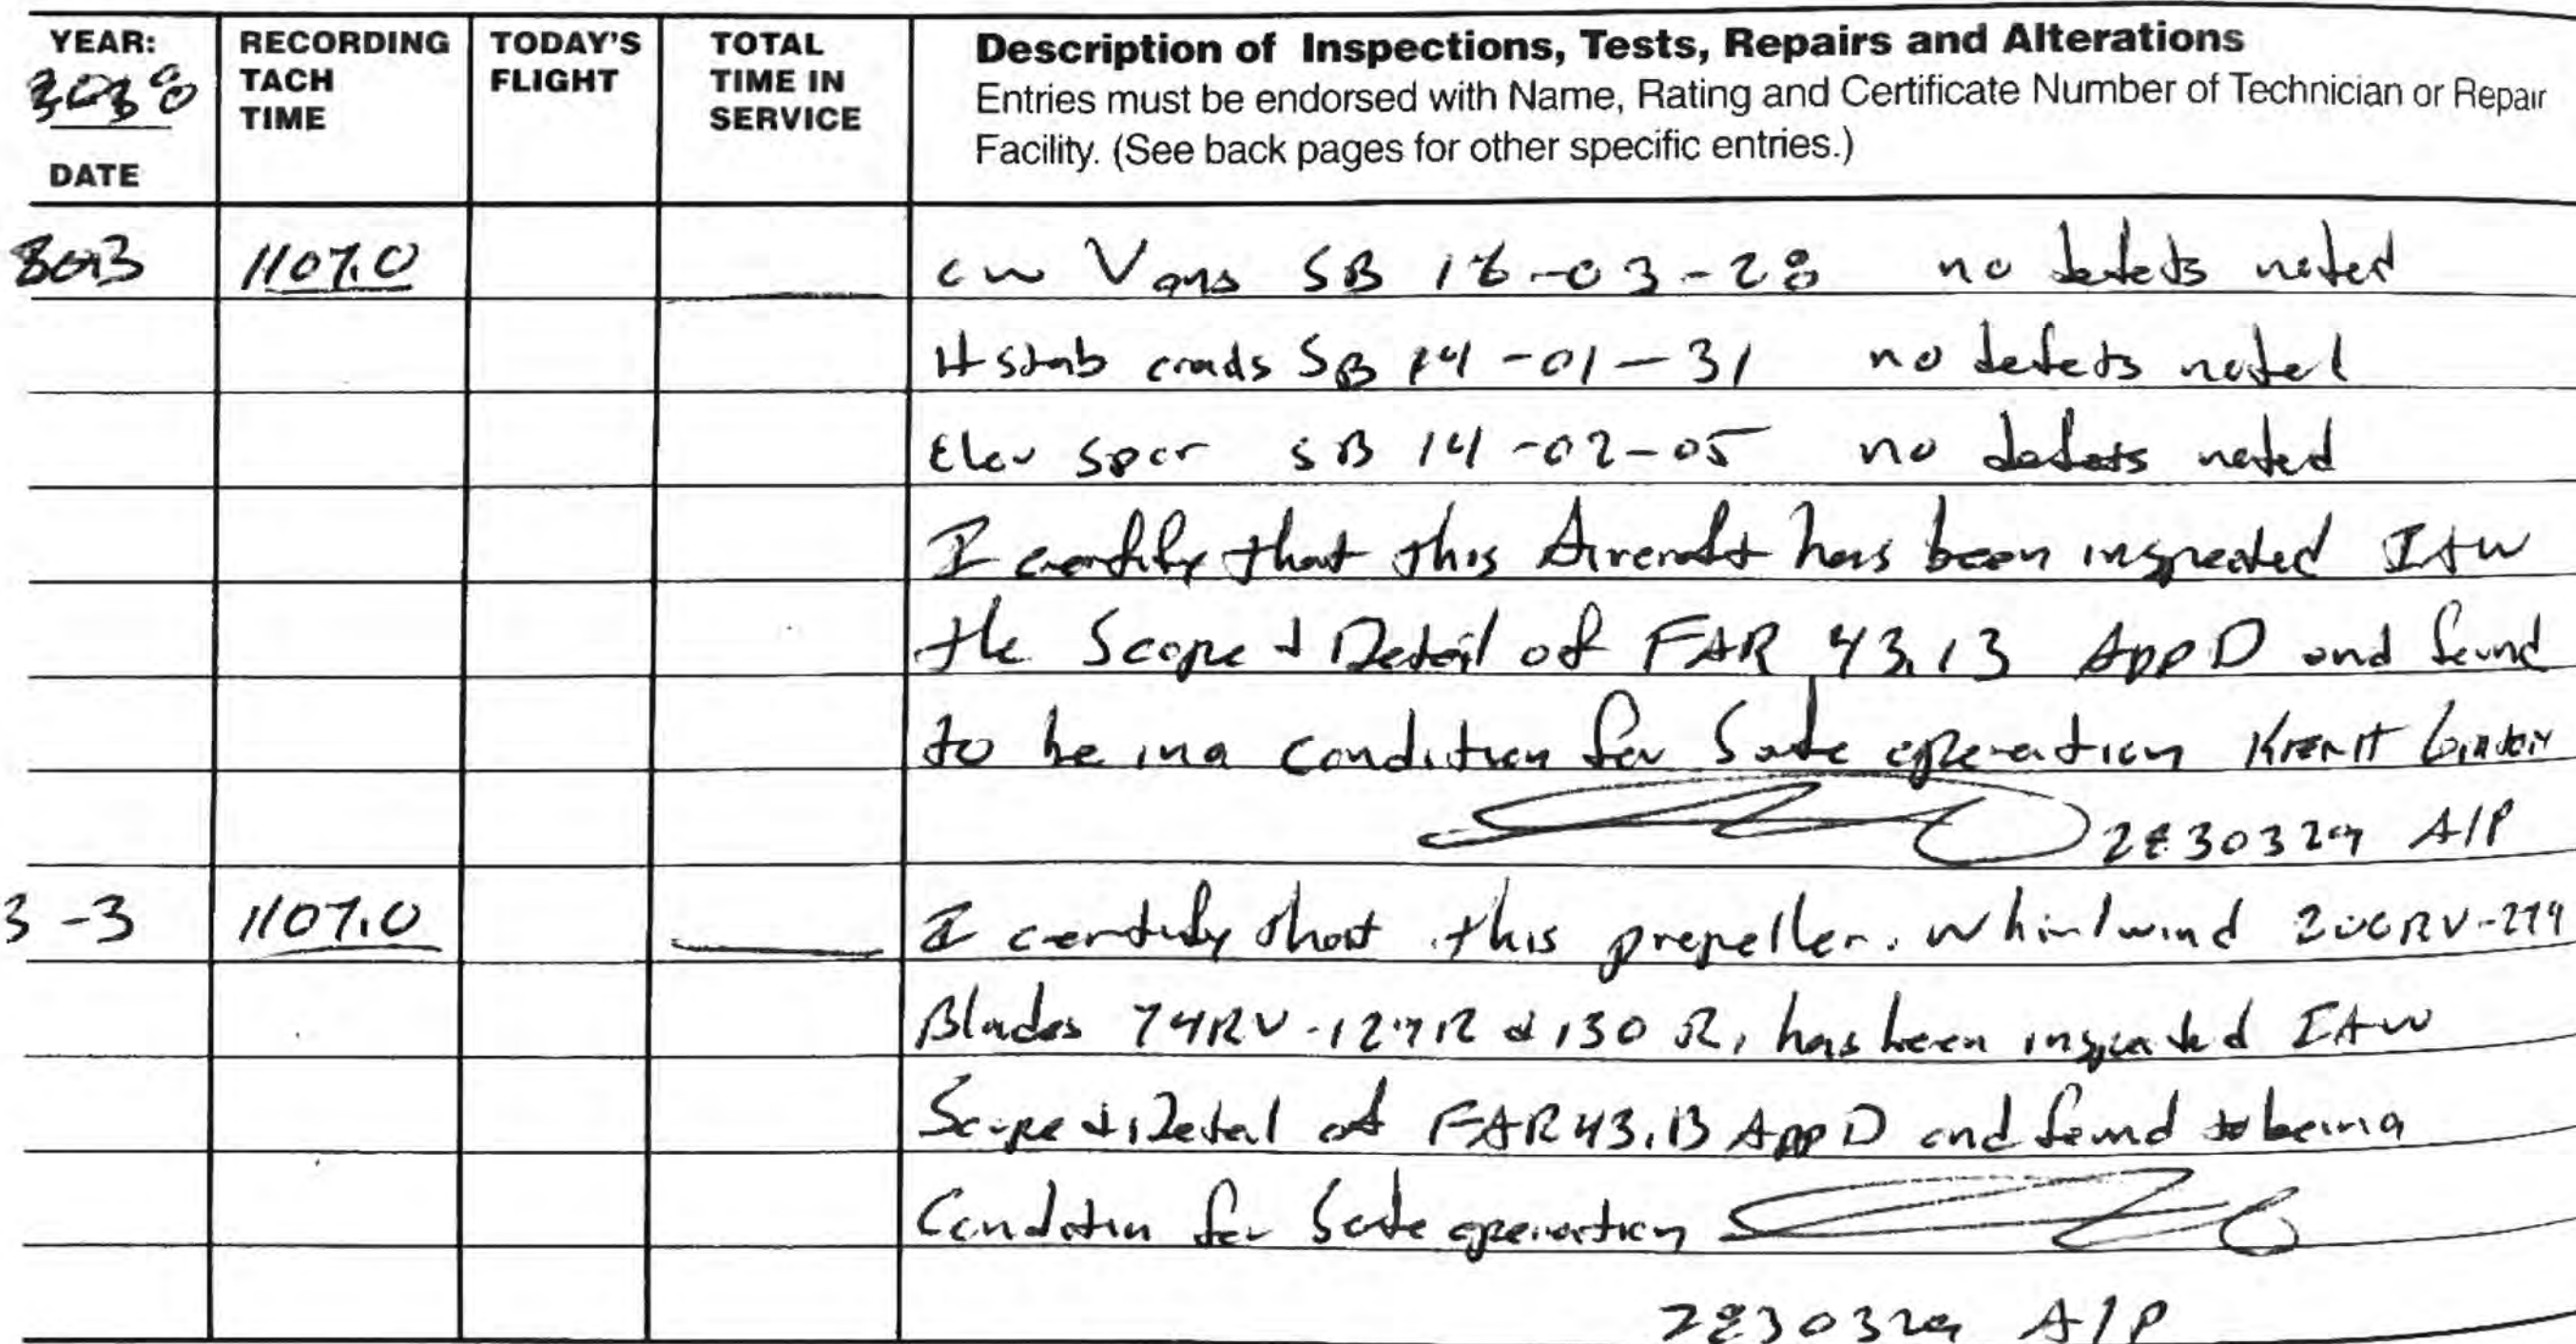 YEAR: RECORDING TODAY'S TOTAL Description of Inspections, Tests, Repairs and Alterations
TACH FLIGHT TIME IN Entries must be endorsed with Name, Rating and Certificate Number of Technician or Repair
TIME SERVICE Facility. (See back pages for other specific entries.)
DATE
1107.0 cw Vans SB 16-03-28 no defects noted
H stab SB 14-01-31 no defects noted
Elev spar SB 14-02-05 no defects noted
I certify that this Aircraft has been inspected IAW
the Scope & Detail of FAR 43.13 App D and found
to be in a condition for Safe operation
A/P
3-3 1107.0 I certify that this propeller. Whirlwind
Blades 74RV-129R & 130R, has been inspected IAW
Scope & Detail of FAR 43.13 App D and found to be in a
Condition for Safe operation
A/P